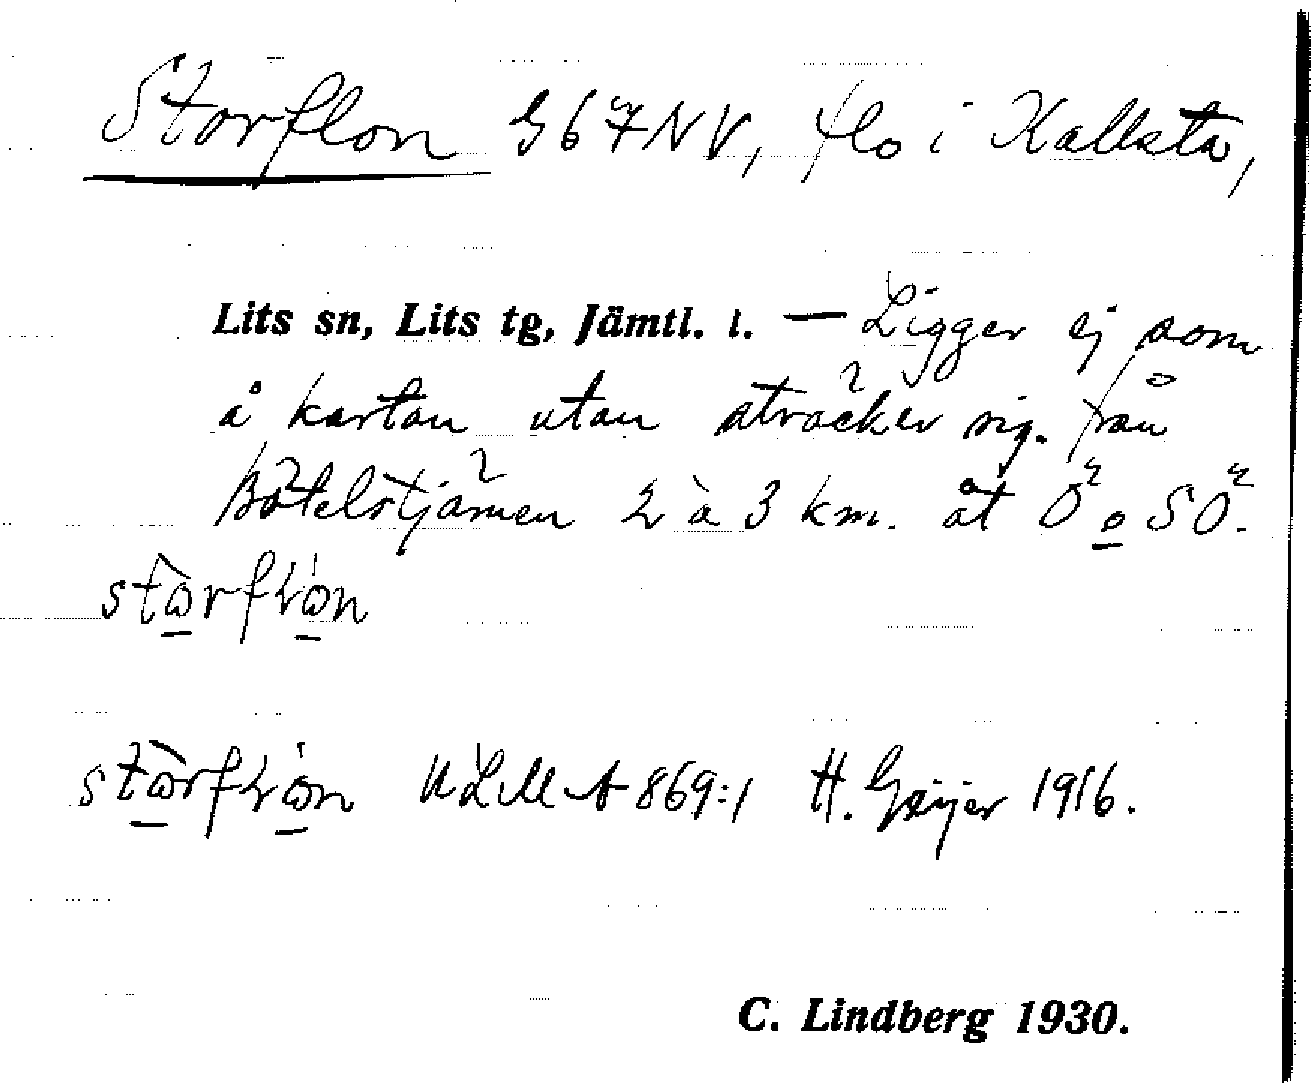 Storflon G67NV, flo i Kallsta,
Lits sn, Lits tg, Jämtl. l. — Ligger ej som
å kartan utan sträcker sig. från
Bötelstjärnen 2 à 3 km. åt Ö o SÖ.
ULMA 869:1 H. Geijer 1916.
C. Lindberg 1930.